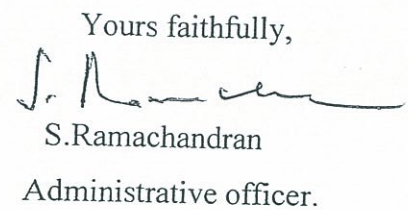 Yours faithfully,
S. Rama
S.Ramachandran
Administrative officer.